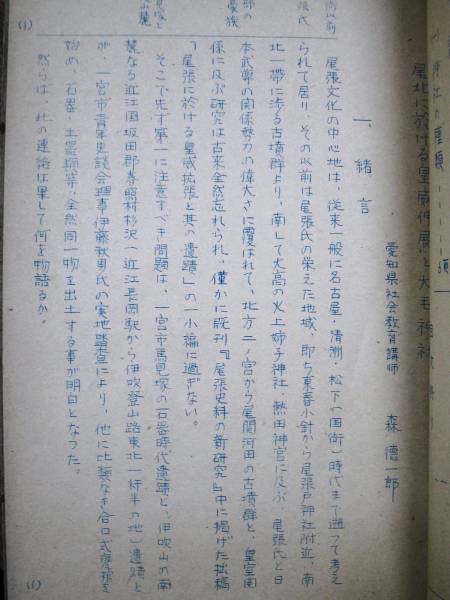 尾北に於ける皇威伸展と大毛神社
愛知県社会教育講師　森　德一郎
一、緒言
尾張文化の中心地は、従来一般に名古屋・清洲・松下(国衙)時代まで遡つて考え
られて居り、その以前は尾張氏の栄えた地域、即ち東春小針から尾張戸神社附近、南
北一帯に渉る古墳群より、南して大高の火上姉子神社、熱田神宮に及ぶ、尾張氏と日
本武尊の関係勢力の偉大さに覆はれて、北方二ノ宮から尾関河田の古墳群と、皇室関
係に及ぶ研究は古来全然忘れられ、僅かに既刊『尾張史料の新研究』中に掲げた拙稿
「尾張に於ける皇威拡張と其の遺蹟」の一小編に過ぎない。
そこで先ず第一に注意すべき問題は、一宮市馬見塚の石器時代遺蹟と、伊吹山の南
麓なる近江国坂田郡春照村杉沢(近江長岡駅から伊吹登山路東北一粁半の地)遺蹟と
が、一宮市青年史談会理事伊藤秋男氏の実地踏査により、他に比類なき合口式甕棺を
始め、石器、土器類等、全然同一物を出土する事が明白となつた。
然らば、此の連絡は果して何を物語るか
(1)
(1)